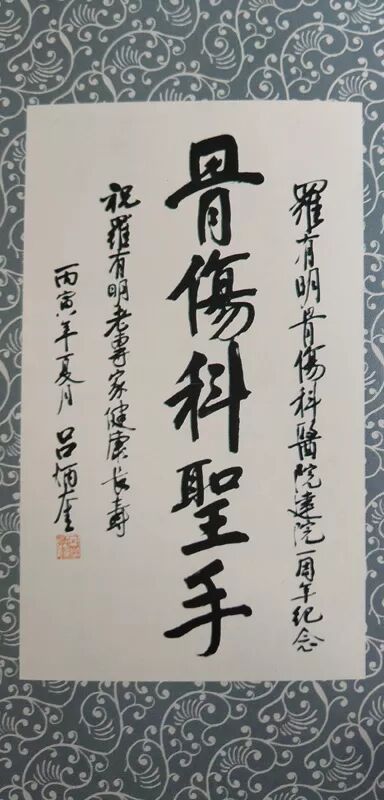 羅有明骨傷科醫院建院一周年纪念
骨傷科聖手
祝羅有明老專家健康長壽
丙寅年夏月 吕炳奎